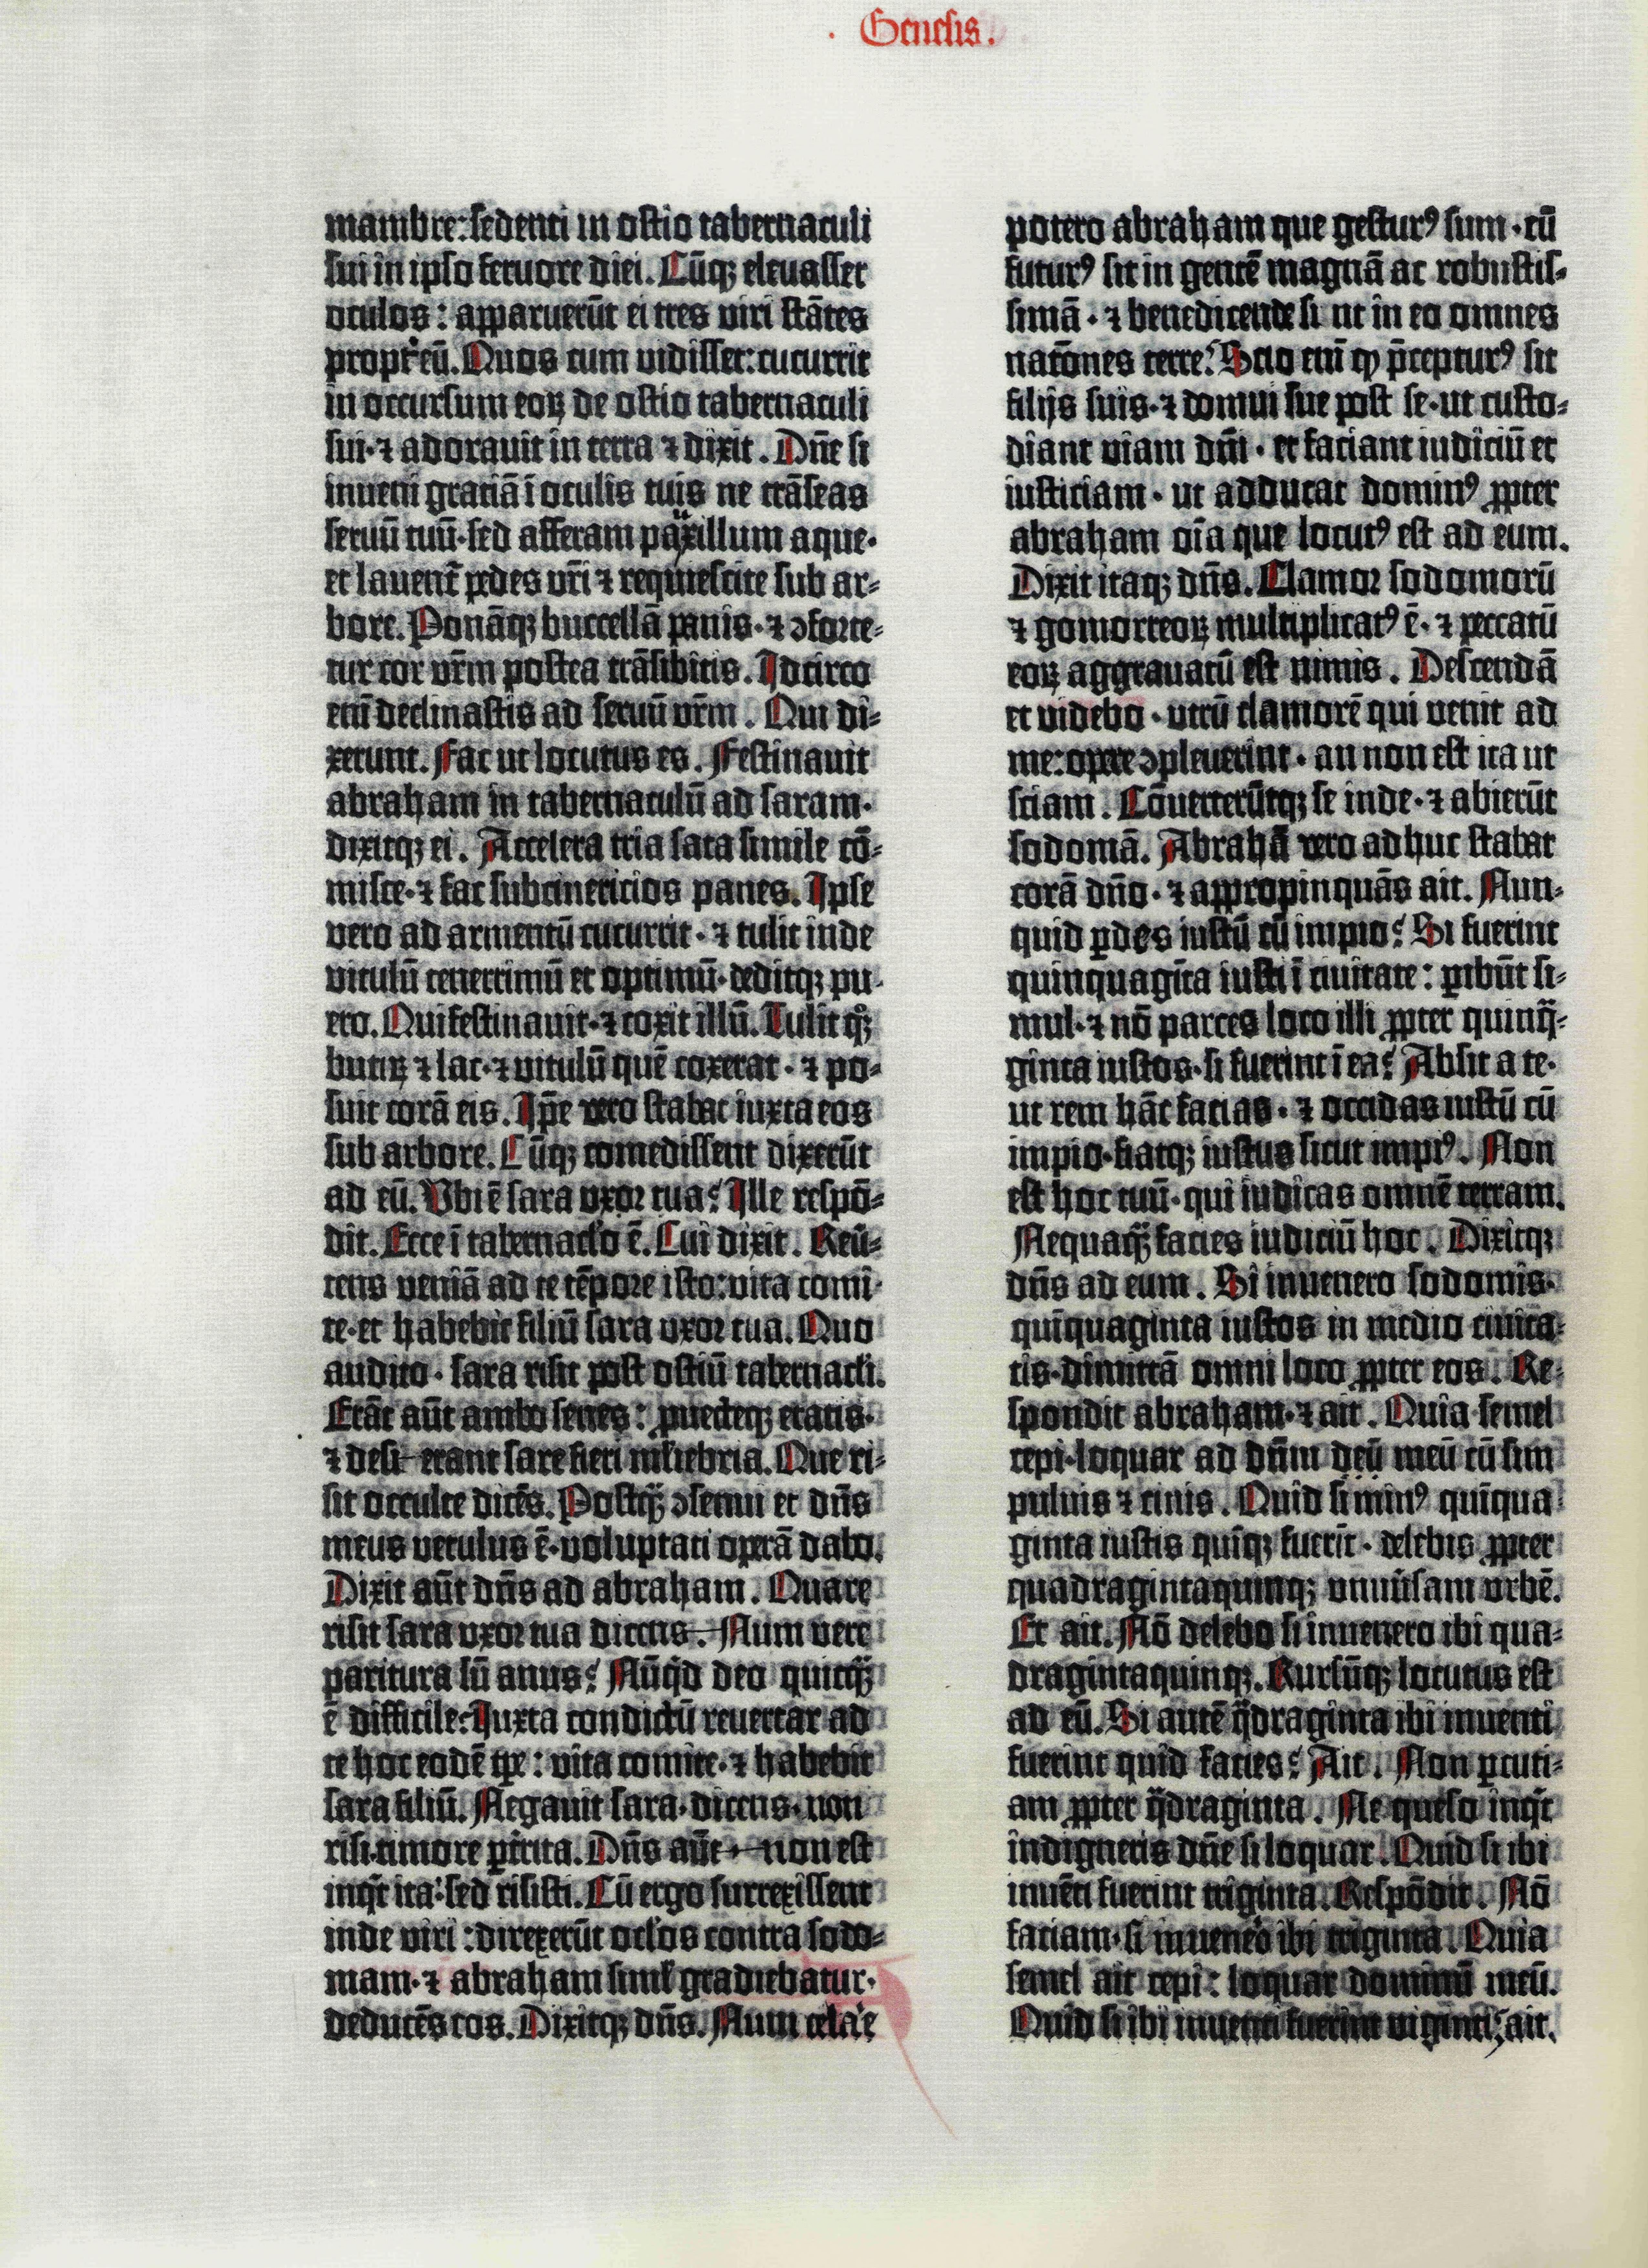 Genesis.
mambre: sedenti in ostio tabernaculi
sui in ipso feruore diei. Cūq; eleuasset
oculos: apparuerūt ei tres viri stātes
propt̕ eū. Quos cum vidisset: cucurrit
in occursum eoꝝ de ostio tabernaculi
sui· ⁊ adorauit in terra ⁊ dixit. Dn̄e si
inueni gratiā ī oculis tuis ne trāseas
seruū tuū· sed afferam pauxillum aque·
et lauent̄ pedes vr̄i ⁊ requiescite sub ar⸗
bore. Ponāq; buccellā panis· ⁊ ꝯforte⸗
tur cor vr̄m postea trāsibitis. Idcirco
eni̅ declinastis ad seruū vr̄m. Qui di⸗
xerunt. Fac ut locutus es. Festinauit
abraham in tabernaculū ad saram·
dixitq; ei. Accelera tria sata simile cō⸗
misce· ⁊ fac subcinericios panes. Ipse
vero ad armentū cucurrit· ⁊ tulit inde
vitulū tenerrimū et optimū· deditq; pu⸗
ero. Qui festinauit· ⁊ coxit illū. Tulit qͦꝫ
butiꝝ ⁊ lac· ⁊ vitulū quē coxerat· ⁊ po⸗
suit corā eis. Ip̄e vero stabat iuxta eos
sub arbore. Cūq; comedissent dixerūt
ad eū. Vbi ē sara vxor tua? Ille respō⸗
dit. Ecce ī tabernacl̕o ē. Cui dixit. Reū⸗
tens veniā ad te tēpore isto: vita comi⸗
te· et habebit filiū sara vxor tua. Quo
audito· sara risit post ostiū tabernacl̕i.
Erāt aūt ambo senes: ꝓuecteq; etatis·
⁊ desierant sare fieri ml̕iebria. Que ri⸗
sit occulte dicēs. Postqͣꝫ ꝯsenui et dn̄s
meus vetulus ē· voluptati operā dabo.
Dixit aūt dn̄s ad abraham. Quare
risit sara vxor tua dicens. Num vere
paritura sū anus? Nūqd̕ deo quicqͣꝫ
ē difficile? Iuxta condictū reuertar ad
te hoc eodē tꝑe: vita comite· ⁊ habebit
sara filiū. Negauit sara· dicens· non
risi· timore ꝑt̕rita. Dn̄s aūt· non est
inqt̕ ita: sed risisti. Cū ergo surrexissent
inde viri: direxerūt ocl̕os contra sodo⸗
mam· ⁊ abraham siml̕ gradiebatur·
deducēs eos. Dixitq; dn̄s. Num cela̕e
potero abraham que gesturꝰ sum· cū
futurꝰ sit in gentē magnā ac robustis⸗
simā· ⁊ benedicende sint in eo omnes
natōnes terre? Scio eni̅ ꝙ p̄cepturꝰ sit
filijs suis· ⁊ domui sue post se· ut custo⸗
diant viam dn̄i· et faciant iudiciū et
iusticiam· ut adducat dominꝰ ꝓpter
abraham oīa que locutꝰ est ad eum.
Dixit itaq; dn̄s. Clamor sodomorū
⁊ gomorreoꝝ multiplicatꝰ ē· ⁊ peccatū
eoꝝ aggrauatū est nimis. Descendā
et videbo· vtrū clamorē qui venit ad
me: opere ꝯpleuerint· an non est ita ut
sciam. Cōuerterūtq; se inde· ⁊ abierūt
sodomā. Abrahā vero adhuc stabat
corā dn̄o· ⁊ appropinquās ait. Nun⸗
quid ꝑdes iustū cū impio? Si fuerint
quinquagīta iusti ī ciuitate: ꝑibūt si⸗
mul· ⁊ nō parces loco illi ꝓpter quinqͣ⸗
ginta iustos· si fuerint ī ea? Absit a te·
ut rem hāc facias· ⁊ occidas iustū cū
impio· fiatq; iustus sicut impiꝰ. Non
est hoc tuū· qui iudicas omnē terram.
Nequaqͣꝫ facies iudiciū hoc. Dixitq;
dn̄s ad eum. Si inuenero sodomis·
quīquaginta iustos in medio ciuita⸗
tis· dimittā omni loco ꝓpter eos. Re⸗
spondit abraham· ⁊ ait. Quia semel
cepi· loquar ad dn̄m deū meū cū sim
puluis ⁊ cinis. Quid si minꝰ quīqua⸗
ginta iustis quīq; fuerīt· delebis ꝓpter
quadragintaquinq; vniuersam vrbē.
Et ait. Nō delebo si inuenero ibi qua⸗
dragintaquinq;. Rursūq; locutus est
ad eū. Si autē qͣdraginta ibi inuenti
fuerint quid facies? Ait. Non ꝑcuti⸗
am ꝓpter qͣdraginta. Ne queso inqt̕
indigneris dn̄e si loquar. Quid si ibi
inuēti fuerint triginta. Respōdit. Nō
faciam· si inuene̕o ibi triginta. Quia
semel ait cepi: loquar dominū meū.
Quid si ibi inuenti fuerint viginti? ait.